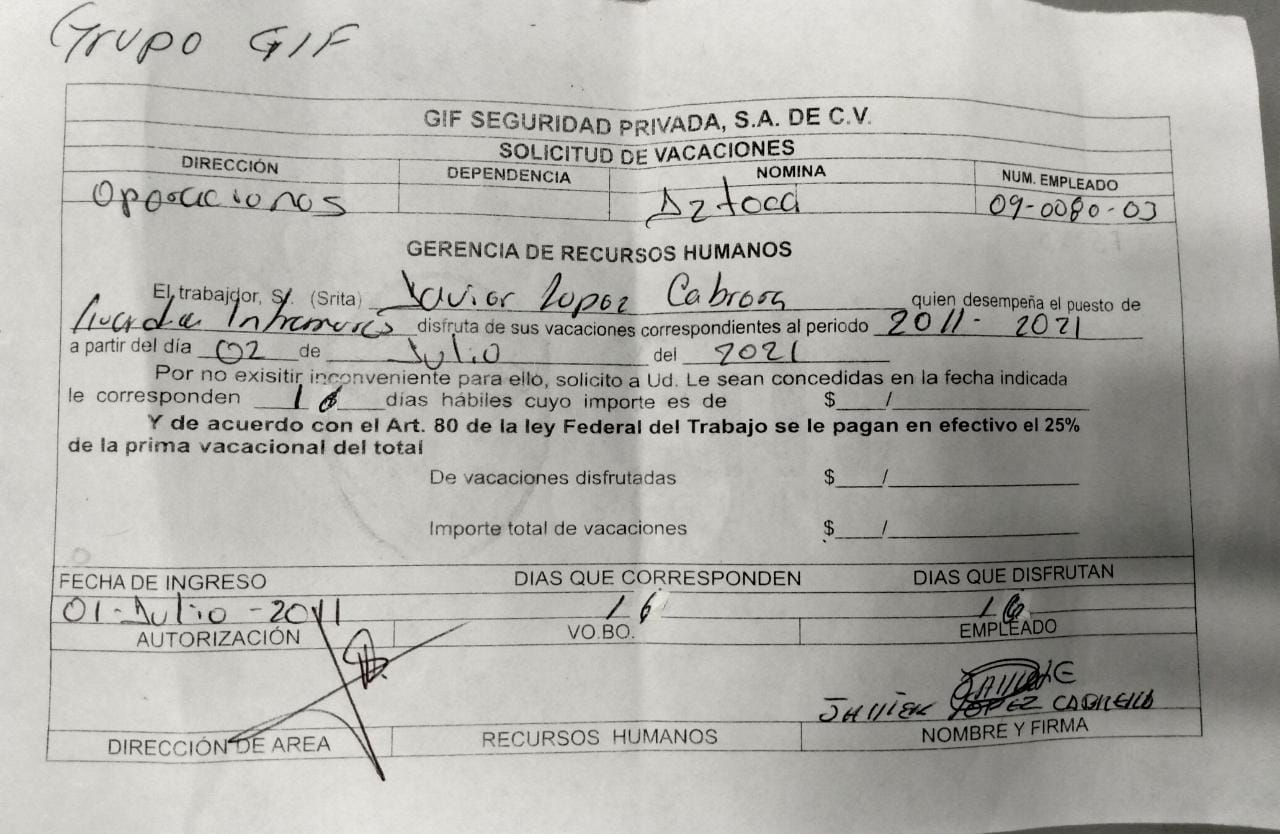 Grupo GIF
GIF SEGURIDAD PRIVADA, S.A. DE C.V.
SOLICITUD DE VACACIONES
DIRECCIÓN DEPENDENCIA NOMINA NUM. EMPLEADO
Operaciones Azteca 09-0080-03
GERENCIA DE RECURSOS HUMANOS
El trabajdor, S/. (Srita) Javier Lopez Cabrera quien desempeña el puesto de
Guardia Intramuros disfruta de sus vacaciones correspondientes al periodo 2011- 2021
a partir del día 02 de Julio del 2021
Por no exisitir inconveniente para ello, solicito a Ud. Le sean concedidas en la fecha indicada
le corresponden 16 días hábiles cuyo importe es de $ /
Y de acuerdo con el Art. 80 de la ley Federal del Trabajo se le pagan en efectivo el 25%
de la prima vacacional del total
De vacaciones disfrutadas $ /
Importe total de vacaciones $ /
FECHA DE INGRESO DIAS QUE CORRESPONDEN DIAS QUE DISFRUTAN
01-Julio-2011 16 16
AUTORIZACIÓN VO.BO. EMPLEADO
JAVIER LOPEZ CABRERA
DIRECCIÓN DE AREA RECURSOS HUMANOS NOMBRE Y FIRMA